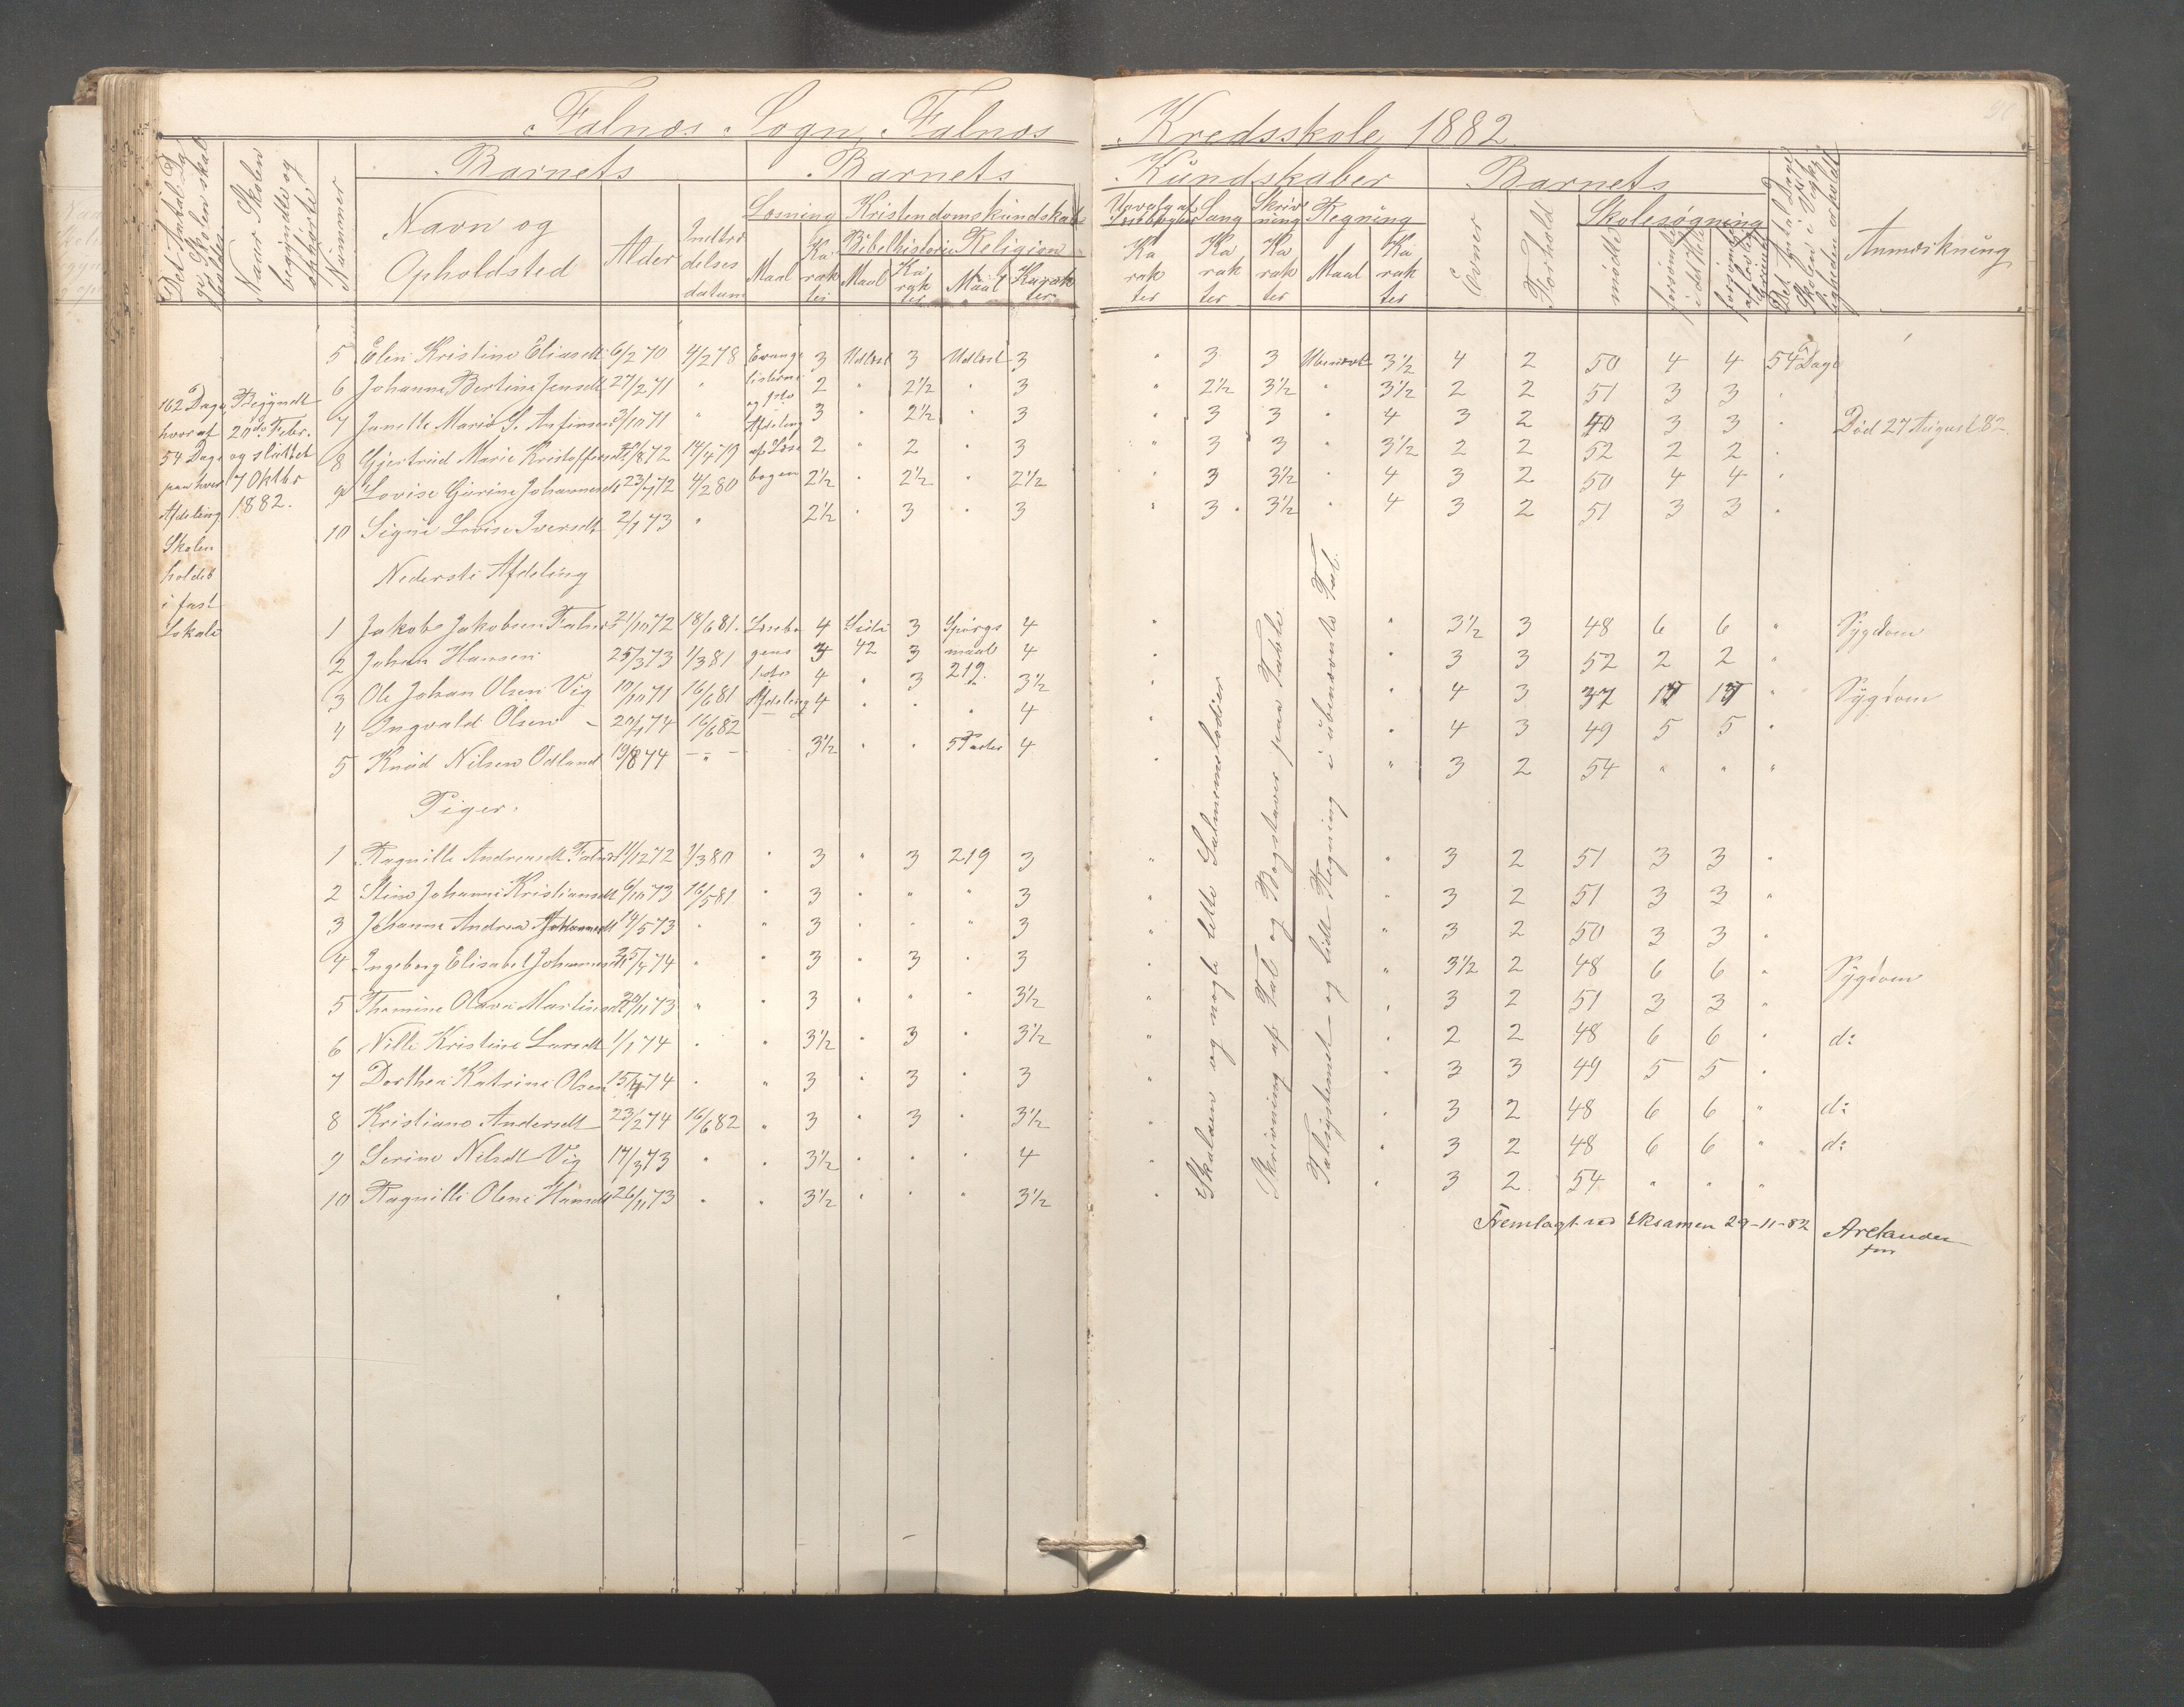 Falnæs Sogn, Falnæs Kredsskole 1882.
Det Antal Dage Skolen skal holdes
Naar Skolen begyndte og opførte
Nummer
Barnets
Navn og Opholdsted
Alder
Indtrædelses datum
Barnets Kundskaber
Læsning
Maal
Karakter
Kristendomskundskab
Bibelhistorie
Maal
Karakter
Religion
Maal
Karakter
Udvalg af Læsebogen
Karakter
Sang
Karakter
Skrivning
Karakter
Regning
Maal
Karakter
Barnets
Evner
Forhold
Skolesøgning
mødte
forsømte i det Hele
forsømte af lovlig Grund
Det Antal Dage Skolen i Virkeligheden er holdt
Anmærkning
162 Dage hvoraf 54 Dage paa hver Afdeling Skolen holdes i fast Lokale
Begyndt 20de Febr. og sluttet 7 Oktbr 1882.
5 Elen Kristine Eliasdt 6/2 70 4/2 78 Evange 3 Udlæst 3 Udlæst 3 " 3 3 Ubenævnt 3½ 4 2 50 4 4 54 Dage
6 Johanne Bertine Jensdt 27/2 71 " listerne 2 " 2½ " 3 " 2½ 3½ " 3½ 2 2 51 3 3 "
7 Janelle Marie S. Anfinsen 3/10 71 " og 3die Afdeling 3 " 2½ " 3 " 3 3 " 4 3 2 40 3 3 " Død 27 August 82.
8 Gjestrud Marie Kristoffersdt /8 72 14/4 79 af Læse 2 " 2 " 3 " 3 3 " 3½ 2 2 52 2 2 "
9 Lovise Gurine Johannesdt 23/7 72 4/2 80 bogen 2½ " 2½ " 2½ " 3 3½ " 4 3 2 50 4 4 "
10 Signe Lovise Iversdt 2/1 73 " 2½ " 3 " 3 " 3 " 3½ " 4 3 2 51 3 3 "
Nederste Afdeling
1 Jakob Jakobsen Falnæs 21/10 72 18/6 81. Læsebo 4 Side 3 Spørgs 4 " " 3½ 3 48 6 6 " Sygdom
2 Johan Hansen 25/3 73 1/3 81 gens 3 42 3 maal 4 " " 3 3 52 2 2 "
3 Ole Johan Olsen Vig 10/10 71 16/6 81 1ste 4 " 3 219. 3½ " 4 3 37 17 17 " Sygdom
4 Ingvald Olsen - 20/1 74 16/6 82 Afdeling 4 " " " 4 " " 4 3 49 5 5 "
5 Knud Nilsen Odland 19/8 74 - " - 3½ " " 5 Parter 4 " " 3 2 54 " " "
Piger.
1 Ragnille Andreasdt Falnæs 11/12 72 1/3 80 " 3 " 3 219 3 " " 3 2 51 3 3 "
2 Stine Johanne Kristiansdt 6/10 73 16/5 81 " 3 " " " 3 " " 3 2 51 3 3 "
3 Johanne Andrea Johannesdt 14/5 73 " " 3 " " " 3 " " 3 2 50 3 3 "
4 Ingeborg Elisabet Johannesdt /4 74 " " 3 " 3 " 3 " " 3½ 2 48 6 6 " Sygdom
5 Thomine Olava Martinsdt /11 73 " " 3 " " " 3½ " " 3 2 51 3 3 "
6 Nille Kristine Larsdt 1/1 74 " " 3½ " 3 " 3½ " " 2 2 48 6 6 " do
7 Dorthea Katrine Olsen 15/4 74 " " 3 " 3 " 3 " " 3 3 49 5 5 "
8 Kristiane Andersdt 23/2 74 16/6 82 " 3 " 3 " 3½ " 3 2 48 6 6 " do
9 Serine Nilsdt Vig 17/3 73 " " 3½ " " " 4 " " 3 2 48 6 6 " do
10 Ragnille Olene Hansdt 26/11 73 " " 3½ " " " 3½ " " 3 2 54 " " "
Skalaen og nogle lette Salmemelodier
Skrivning af Tal og Bogstaver paa Tavle
Talsystemet og lidt Regning i ubenævnte Tal.
Fremlagt ved Eksamen 29-11-82